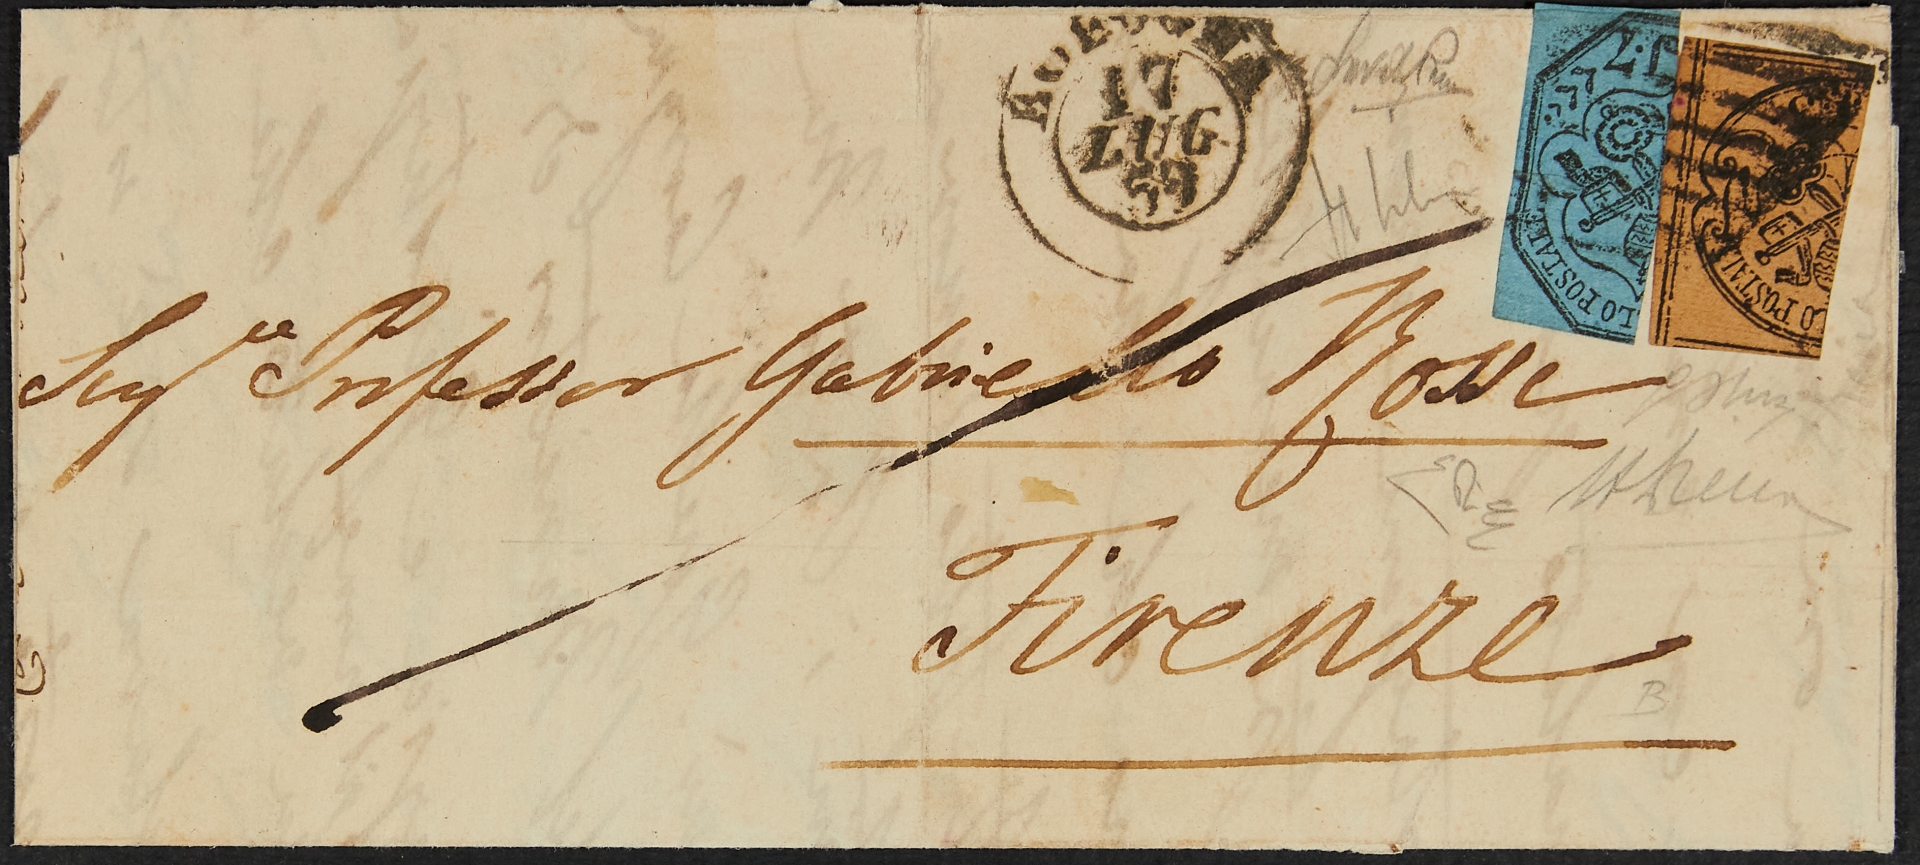 BOLOGNA
17
LUG
59
B.7
LO POSTALE
LO POSTALE
Sigre Professor Gabriello Rossi
Firenze
B